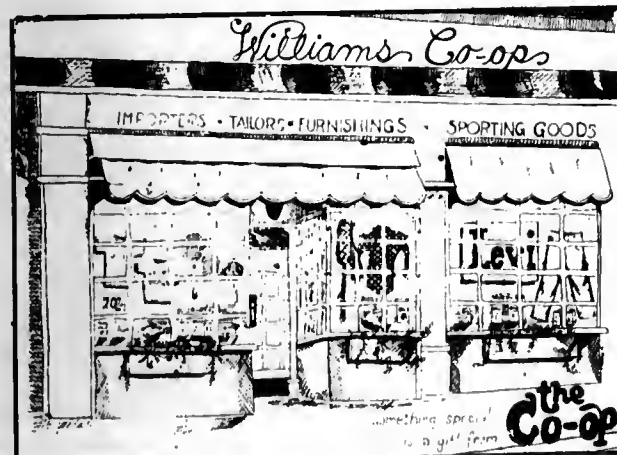 Williams Co-op
IMPORTERS • TAILORS • FURNISHINGS • SPORTING GOODS
Levi
something special
is a gift from
the
Co-op